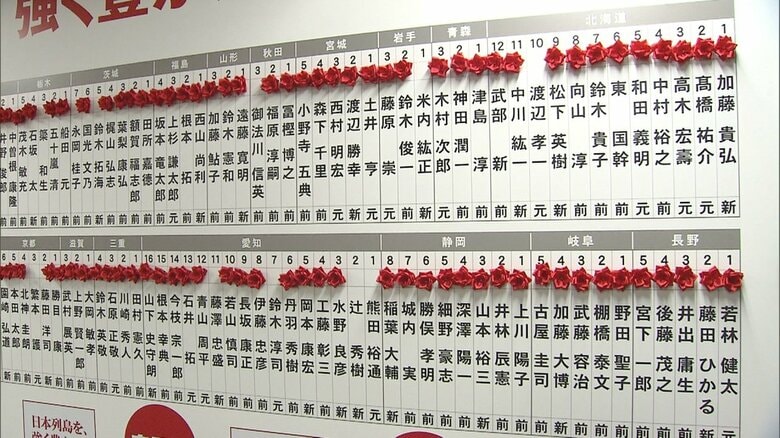 強く豊
北海道
1 加藤貴弘 新
2 髙橋祐介 新
3 高木宏壽 元
4 中村裕之 前
5 和田義明 元
6 東国幹 前
7 鈴木貴子 前
8 向山淳 前
9 松下英樹 新
10 渡辺孝一 元
11 中川紘一 新
12 武部新 前
青森
1 津島淳 前
2 神田潤一 前
3 木村次郎 元
岩手
1 米内紘正 新
2 鈴木俊一 前
3 藤原崇 前
宮城
1 土井亨 元
2 渡辺勝幸 新
3 西村明宏 元
4 森下千里 前
5 小野寺五典 前
秋田
1 冨樫博之 前
2 福原淳嗣 前
3 御法川信英 前
山形
1 遠藤寛明 新
2 鈴木憲和 前
3 加藤鮎子 前
福島
1 西山尚利 新
2 根本拓
3 上杉謙太郎 元
4 坂本竜太郎 前
茨城
1 田所嘉徳
2 額賀福志郎
3 葉梨康弘 前
4 梶山弘志 前
5 鈴木拓海 新
6 国光文乃
7 永岡桂子
栃木
1 船田元
2 五十嵐清 前
3 簗和生 前
4 石坂太 新
5 茂木敏充 前
1 中曽根康隆 前
2 井野俊郎 前
長野
1 若林健太 元
2 藤田ひかる 新
3 井出庸生 前
4 後藤茂之 前
5 宮下一郎 前
岐阜
1 野田聖子 前
2 棚橋泰文 前
3 武藤容治 前
4 加藤大博
5 古屋圭司 前
静岡
1 上川陽子 前
2 井林辰憲 前
3 山本裕三
4 深澤陽一 前
5 細野豪志 前
6 勝俣孝明
7 城内実 前
8 稲葉大輔 新
愛知
1 熊田裕通 元
2 辻秀樹 新
3 水野良彦 新
4 工藤彰三
5 岡本康宏 新
6 丹羽秀樹 前
7 鈴木淳司
8 伊藤忠彦
9 長坂康正
10 若山慎司
11 藤沢忠盛 新
12 青山周平
13 石井拓
14 今枝宗一郎 前
15 根本幸典 前
16 山下史守朗 新
三重
1 田村憲久 前
2 川崎秀人
3 石原正敬
4 鈴木英敬 前
滋賀
1 大岡敏孝
2 上野賢一郎 前
3 武村展英 前
京都
1 勝目康 前
2 藤田洋司 新
3 繁本護 元
6 園崎弘道 新
日本列島を、